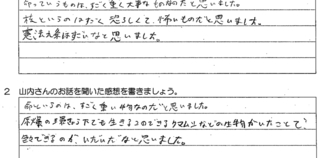 命っていうものは、すごく重く大事なものなのだと思いました。
核というのはすごく恐ろしくて、怖いものだと思いました。
憲法九条はすごいなと思いました。
2 山内さんのお話を聞いた感想を書きましょう。
命というのは、すごく重い物なのだと思いました。
原爆の爆発の下でも生きることのできるクマムシなどの生物がいたことで?